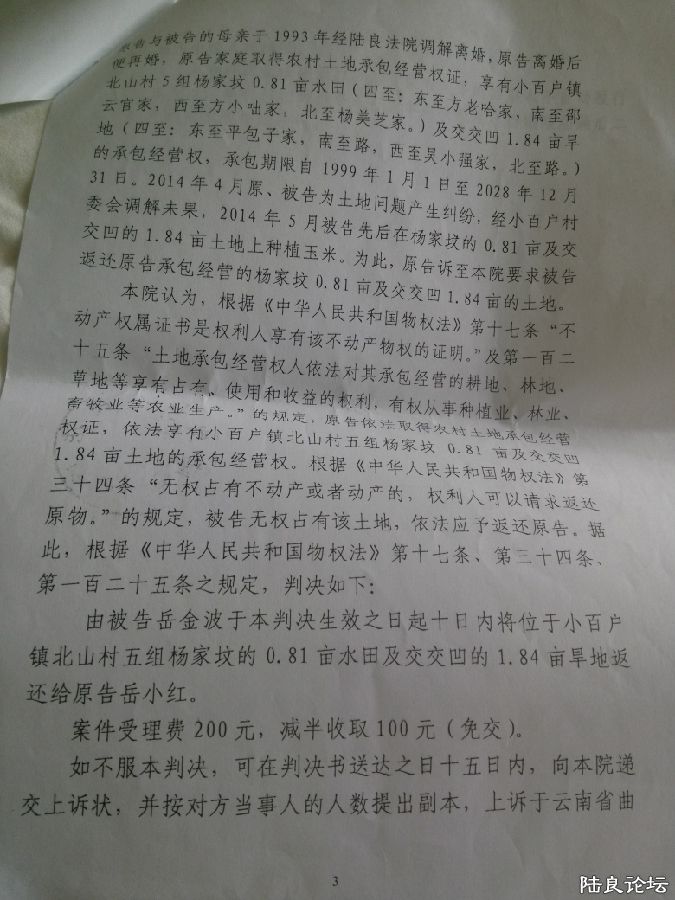 原告与被告的母亲于1993年经陆良法院调解离婚,原告离婚后
便再婚,原告家庭取得农村土地承包经营权证,享有小百户镇
北山村5组杨家坟0.81亩水田(四至:东至方老哈家,南至邵
云官家,西至方小咄家,北至杨美芝家。)及交交凹1.84亩旱
地(四至:东至平包子家,南至路,西至吴小强家,北至路。)
的承包经营权,承包期限自1999年1月1日至2028年12月
31日。2014年4月原、被告为土地问题产生纠纷,经小百户村
委会调解未果,2014年5月被告先后在杨家坟的0.81亩及交
交凹的1.84亩土地上种植玉米。为此,原告诉至本院要求被告
返还原告承包经营的杨家坟0.81亩及交交凹1.84亩的土地。
本院认为,根据《中华人民共和国物权法》第十七条“不
动产权属证书是权利人享有该不动产物权的证明。”及第一百二
十五条“土地承包经营权人依法对其承包经营的耕地、林地、
草地等享有占有、使用和收益的权利,有权从事种植业、林业、
畜牧业等农业生产。”的规定,原告依法取得农村土地承包经营
权证,依法享有小百户镇北山村五组杨家坟0.81亩及交交凹
1.84亩土地的承包经营权。根据《中华人民共和国物权法》第
三十四条“无权占有不动产或者动产的,权利人可以请求返还
原物。”的规定,被告无权占有该土地,依法应予返还原告。据
此,根据《中华人民共和国物权法》第十七条、第三十四条、
第一百二十五条之规定,判决如下:
由被告岳金波于本判决生效之日起十日内将位于小百户
镇北山村五组杨家坟的0.81亩水田及交交凹的1.84亩旱地返
还给原告岳小红。
案件受理费200元,减半收取100元(免交)。
如不服本判决,可在判决书送达之日十五日内,向本院递
交上诉状,并按对方当事人的人数提出副本,上诉于云南省曲
3
陆良论坛